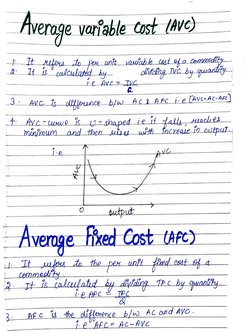 Average variable Cost (AVC)
1. It refers to per unit variable cost of a commodity
2. It is calculated by dividing TVC by quantity
i.e AVC = TVC
Q
3. AVC is difference b/w AC & AFC i.e [AVC=AC-AFC]
4. AVC-curve is U-shaped i.e it falls, reaches
minimum and then rises with increase in output.
i.e
AVC
AVC
0
output
Average Fixed Cost (AFC)
1. It refers to the per unit fixed cost of a
commodity
2. It is calculated by dividing TFC by quantity
i.e AFC = TFC
Q
3. AFC is the difference b/w AC and AVC.
i.e AFC = AC-AVC